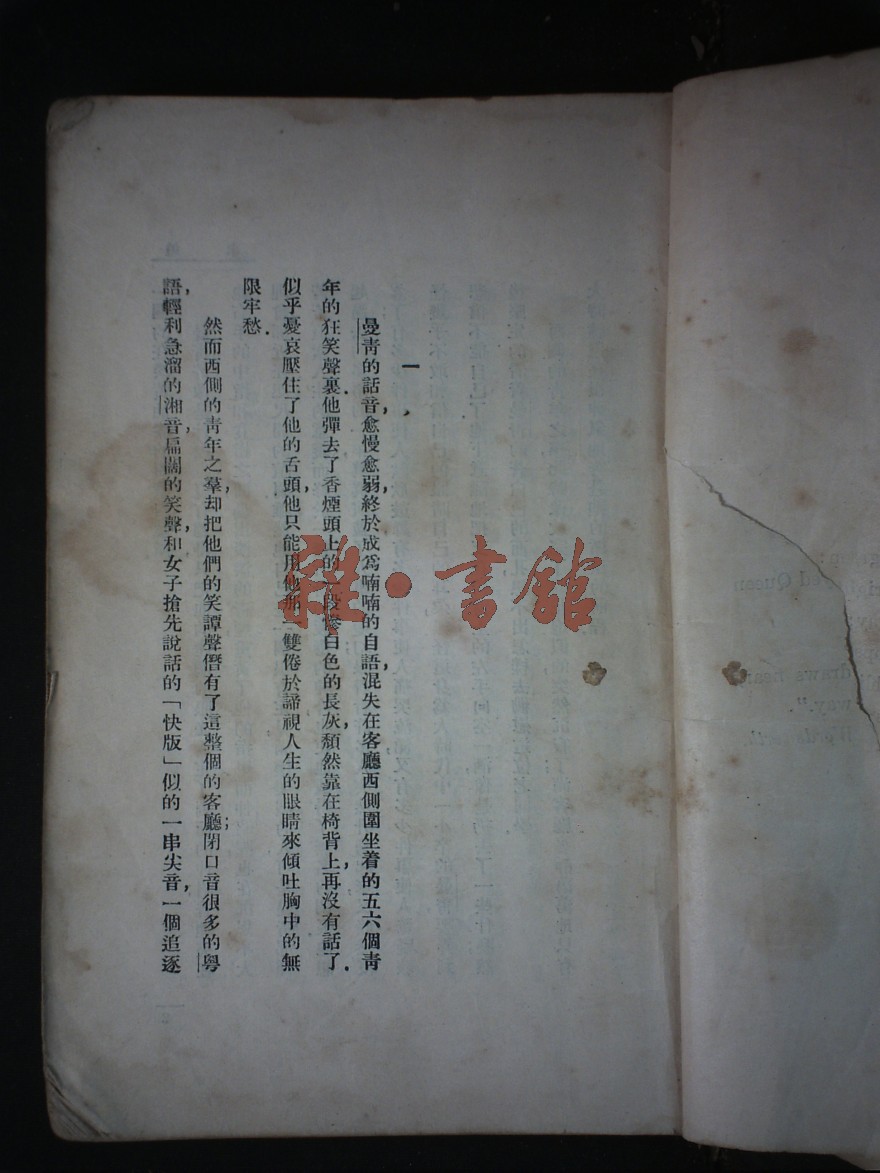 一
曼靑的話音愈慢愈弱,終於成爲喃喃的自語,混失在客廳西側圍坐着的五六個靑
年的狂笑聲裏.他彈去了香煙頭上的一段慘白色的長灰,頹然靠在椅背上,再沒有話了.
似乎憂哀壓住了他的舌頭,他只能用他那一雙倦於諦視人生的眼睛來傾吐胸中的無
限牢愁.
然而西側的靑年之羣,却把他們的笑譚聲僭有了這整個的客廳;閉口音很多的粤
語,輕利急溜的湘音,扁闊的笑聲,和女子搶先說話的「快版」似的一串尖音,一個追逐
雜·書館